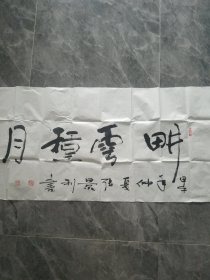 畊雲種月
甲午仲夏景利書